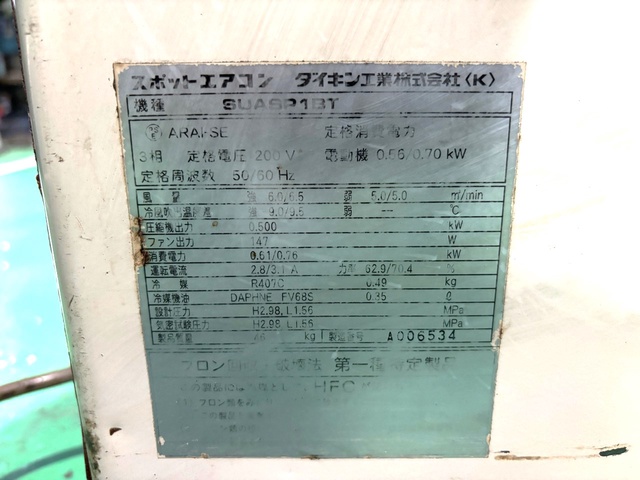 スポットエアコン ダイキン工業株式会社〈K〉
機種 SUASP1BT
ARAI-SE 定格消費電力
3相 定格電圧 200 V 電動機 0.56/0.70 kW
定格周波数 50/60 Hz
風量 強 6.0/6.5 弱 5.0/5.0 m³/min
冷風吹出温度差 強 9.0/9.5 弱 -- ℃
圧縮機出力 0.500 kW
ファン出力 147 W
消費電力 0.61/0.76 kW
運転電流 2.8/3.1 A 力率 62.9/70.4 %
冷媒 R407C 0.49 kg
冷凍機油 DAPHNE FV68S 0.35 ℓ
設計圧力 H2.98, L1.56 MPa
気密試験圧力 H2.98, L1.56 MPa
製品質量 kg 製造番号 A006534
フロン 破壊法 第一種特定製品
この製品には HFC
フロン類を
の製品を